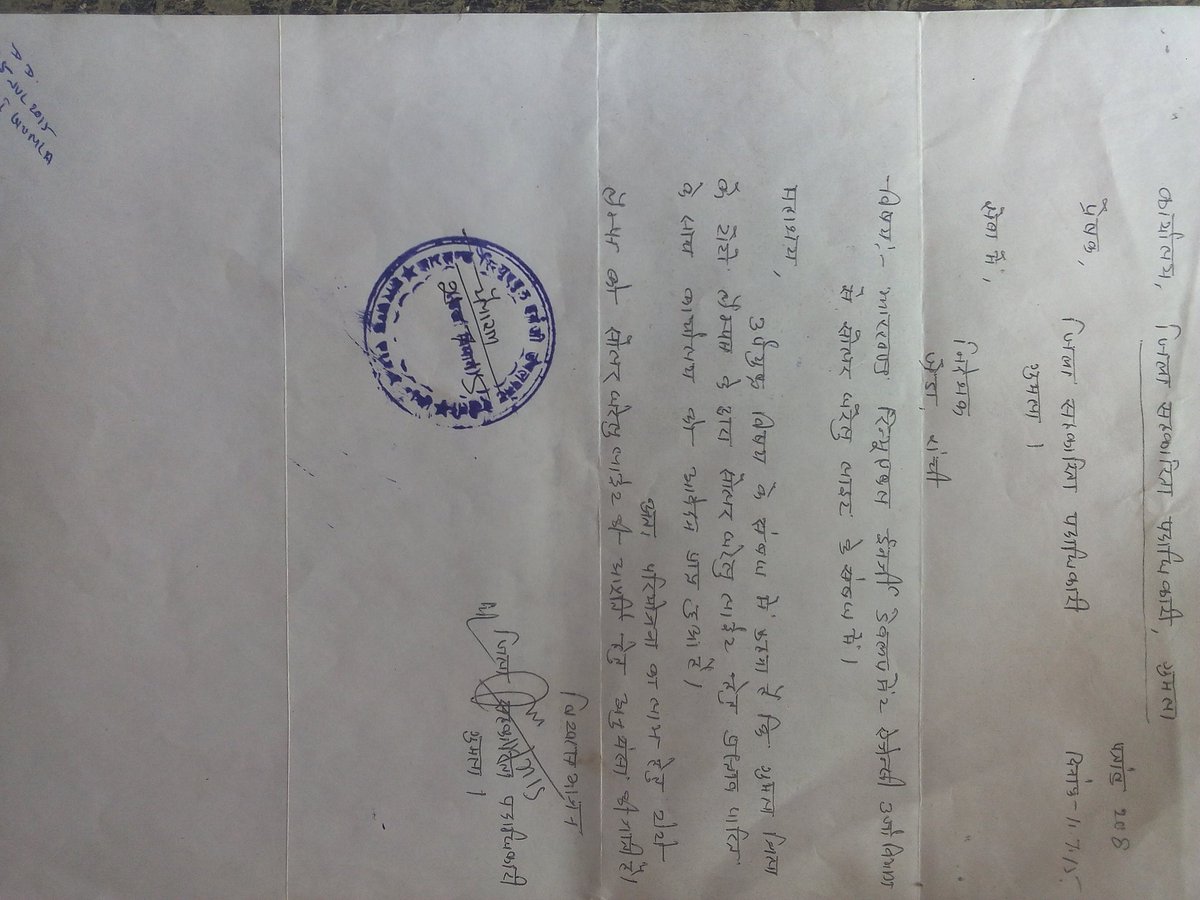 कार्यालय, जिला सहकारिता पदाधिकारी, गुमला
पत्रांक 208
दिनांक - 11.7.15
प्रेषक,
जिला सहकारिता पदाधिकारी
गुमला।
सेवा में,
निदेशक
जेरेडा, रांची
विषय:- झारखण्ड रिन्युएबल ईनर्जी डेवलपमेंट एजेन्सी उर्जा विभाग
से सोलर घरेलु लाइट के संबंध में।
महाशय,
उपर्युक्त विषय के संबंध में कहना है कि गुमला जिला
के दोनों लैम्पस के द्वारा सोलर घरेलु लाईट हेतु प्रस्ताव पारित
के साथ कार्यालय को आवेदन प्राप्त हुआ है।
अतः परियोजना का लाभ हेतु दोनों
लैम्पस को सोलर घरेलु लाईट की आपूर्ति हेतु अनुशंसा की जाती है।
विश्वासभाजन
जिला सहकारिता पदाधिकारी
गुमला।
JUL 2015
GUMLA